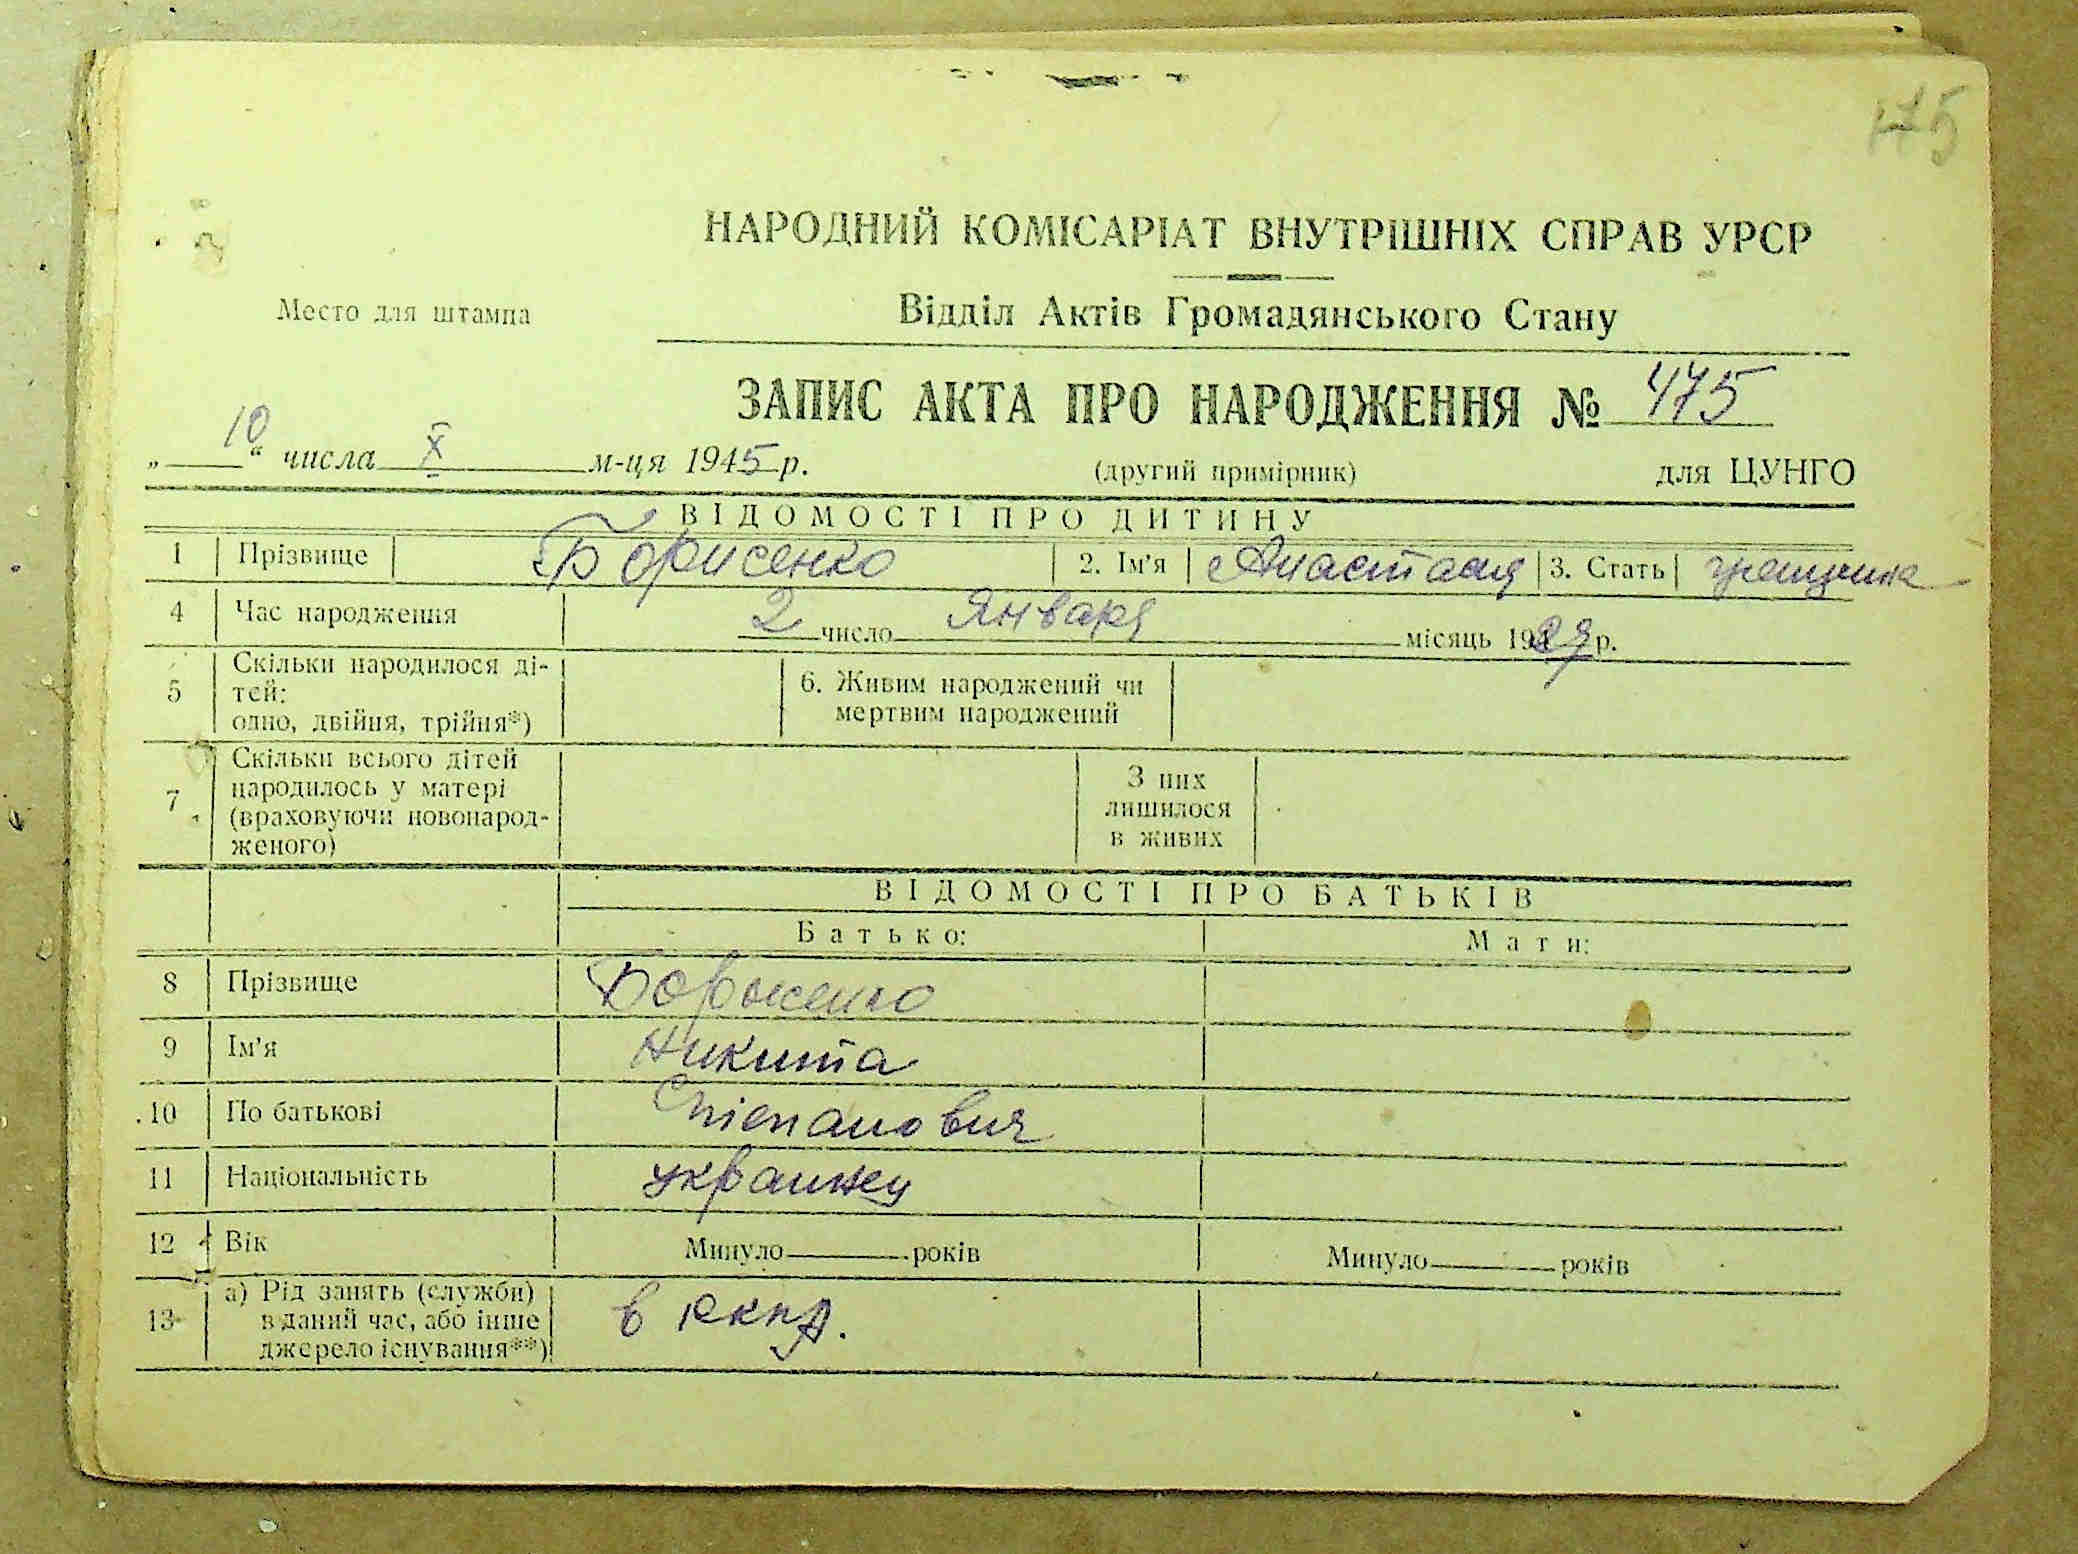 175
НАРОДНИЙ КОМІСАРІАТ ВНУТРІШНІХ СПРАВ УРСР
Место для штампа
Відділ Актів Громадянського Стану
ЗАПИС АКТА ПРО НАРОДЖЕННЯ № 475
„ 10 “ числа X м-ця 1945 р. (другий примірник) для ЦУНГО
ВІДОМОСТІ ПРО ДИТИНУ
1 Прізвище Борисенко 2. Ім'я Анастасия 3. Стать
4 Час народження 2 число Января місяць 19 р.
5 Скільки народилося ді-
тей:
одно, двійня, трійня*)
6. Живим народжений чи
мертвим народжений
7 Скільки всього дітей
народилось у матері
(враховуючи новонарод-
женого)
З них
лишилося
в живих
ВІДОМОСТІ ПРО БАТЬКІВ
Батько: Мати:
8 Прізвище Борисенко
9 Ім'я Никита
10 По батькові Степанович
11 Національність украинец
12 Вік Минуло років Минуло років
13 а) Рід занять (служби)
в даний час, або інше
джерело існування**)
в РККА.